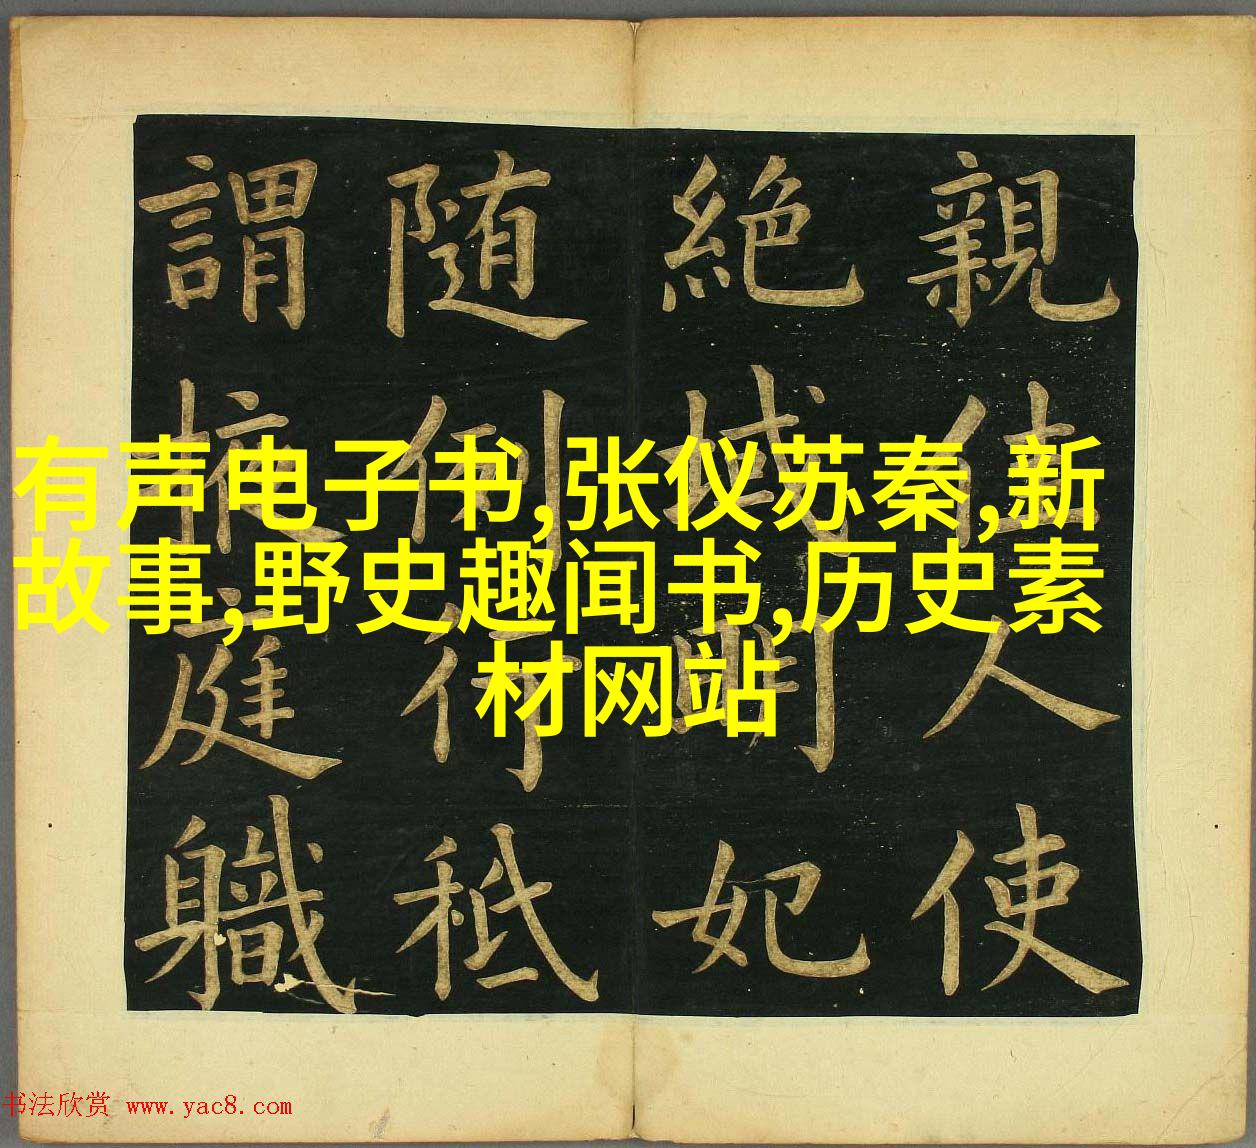 有声电子书,张仪苏秦,新
故事,野史趣闻书,历史素
材网站
親人使
絶域明妃
随例行秖
謂掖庭軄
书法欣赏 www.yac8.com